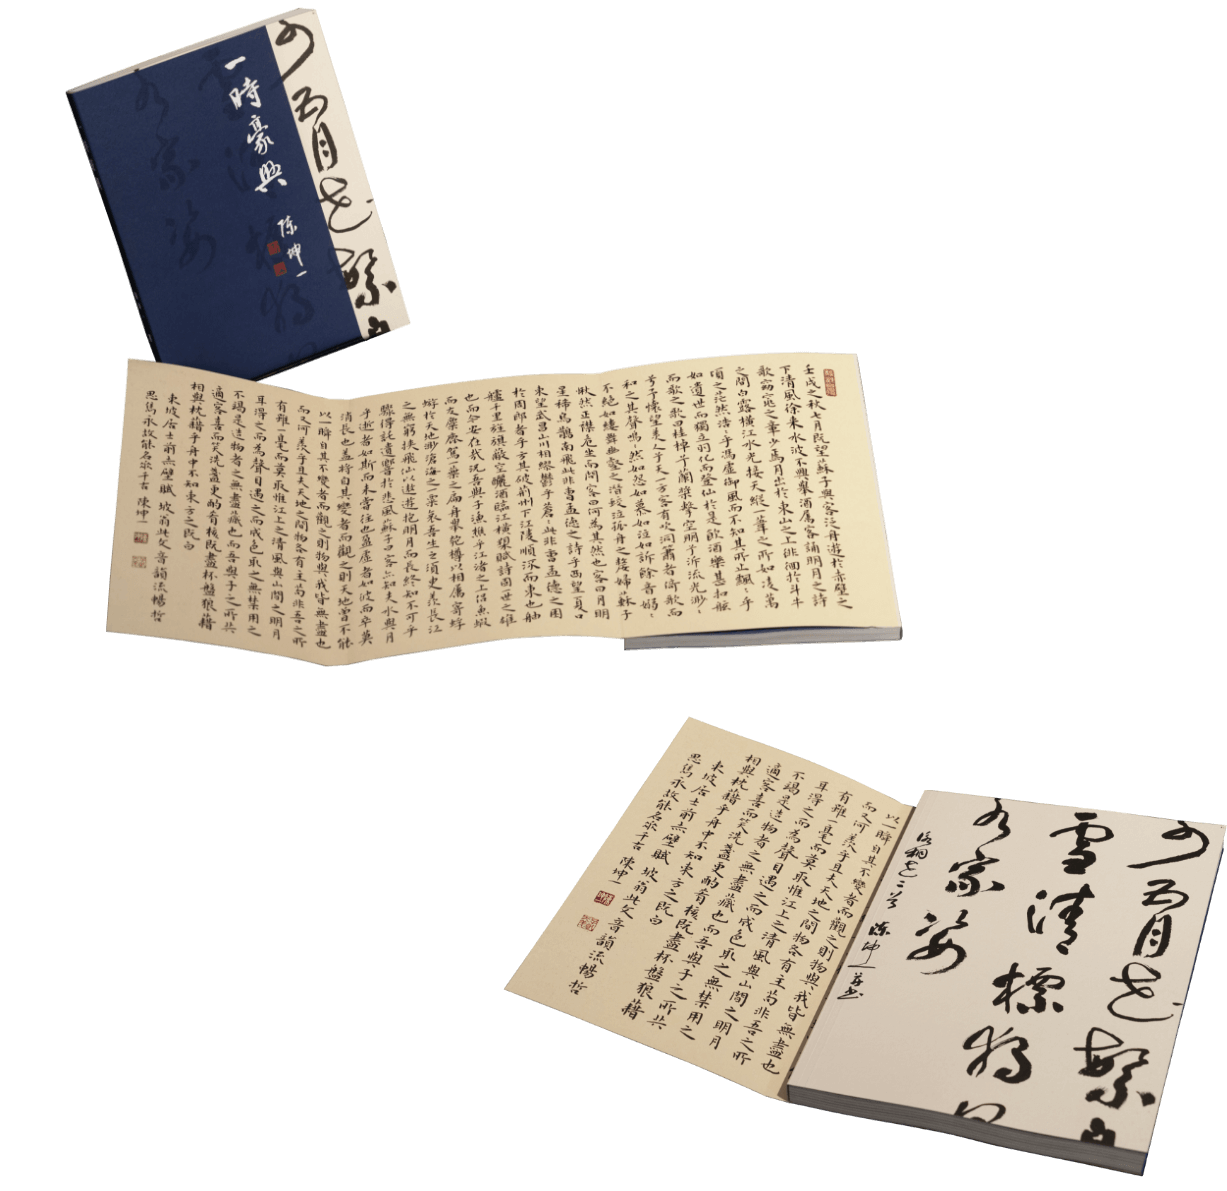 一時豪興
陳坤一
五月花繁
壬戌之秋七月既望蘇子與客泛舟遊於赤壁之
下清風徐來水波不興舉酒屬客誦明月之詩
歌窈窕之章少焉月出於東山之上徘徊於斗牛
之間白露橫江水光接天縱一葦之所如凌萬
頃之茫然浩〻乎馮虛御風而不知其所止飄〻乎
如遺世而獨立羽化而登仙於是飲酒樂甚扣舷
而歌之歌曰桂棹兮蘭槳擊空明兮泝流光渺〻
兮予懷望美人兮天一方客有吹洞簫者倚歌而
和之其聲嗚〻然如怨如慕如泣如訴餘音嫋〻
不絕如縷舞幽壑之潛蛟泣孤舟之嫠婦蘇子
愀然正襟危坐而問客曰何為其然也客曰月明
星稀烏鵲南飛此非曹孟德之詩乎西望夏口
東望武昌山川相繆鬱乎蒼〻此非曹孟德之困
於周郎者乎方其破荊州下江陵順流而東也舳
艫千里旌旗蔽空釃酒臨江橫槊賦詩固一世之雄
也而今安在哉況吾與子漁樵乎江渚之上侶魚蝦
而友麋鹿駕一葉之扁舟舉匏樽以相屬寄蜉
蝣於天地渺滄海之一粟哀吾生之須臾羨長江
之無窮挾飛仙以遨遊抱明月而長終知不可乎
驟得託遺響於悲風蘇子曰客亦知夫水與月
乎逝者如斯而未嘗往也盈虛者如彼而卒莫
消長也蓋將自其變者而觀之則天地曾不能
以一瞬自其不變者而觀之則物與我皆無盡也
而又何羨乎且夫天地之間物各有主苟非吾之所
有雖一毫而莫取惟江上之清風與山間之明月
耳得之而為聲目遇之而成色取之無禁用之
不竭是造物者之無盡藏也而吾與子之所共
適客喜而笑洗盞更酌肴核既盡杯盤狼藉
相與枕藉乎舟中不知東方之既白
東坡居士前赤壁賦 坡翁此文音韻流暢哲
思雋永故能名家千古 陳坤一
五月花繁
雪清標將
家姿
詠桐花二首 陳坤一并書
以一瞬自其不變者而觀之則物與我皆無盡也
而又何羨乎且夫天地之間物各有主苟非吾之所
有雖一毫而莫取惟江上之清風與山間之明月
耳得之而為聲目遇之而成色取之無禁用之
不竭是造物者之無盡藏也而吾與子之所共
適客喜而笑洗盞更酌肴核既盡杯盤狼藉
相與枕藉乎舟中不知東方之既白
東坡居士前赤壁賦 坡翁此文音韻流暢哲
思雋永故能名家千古 陳坤一